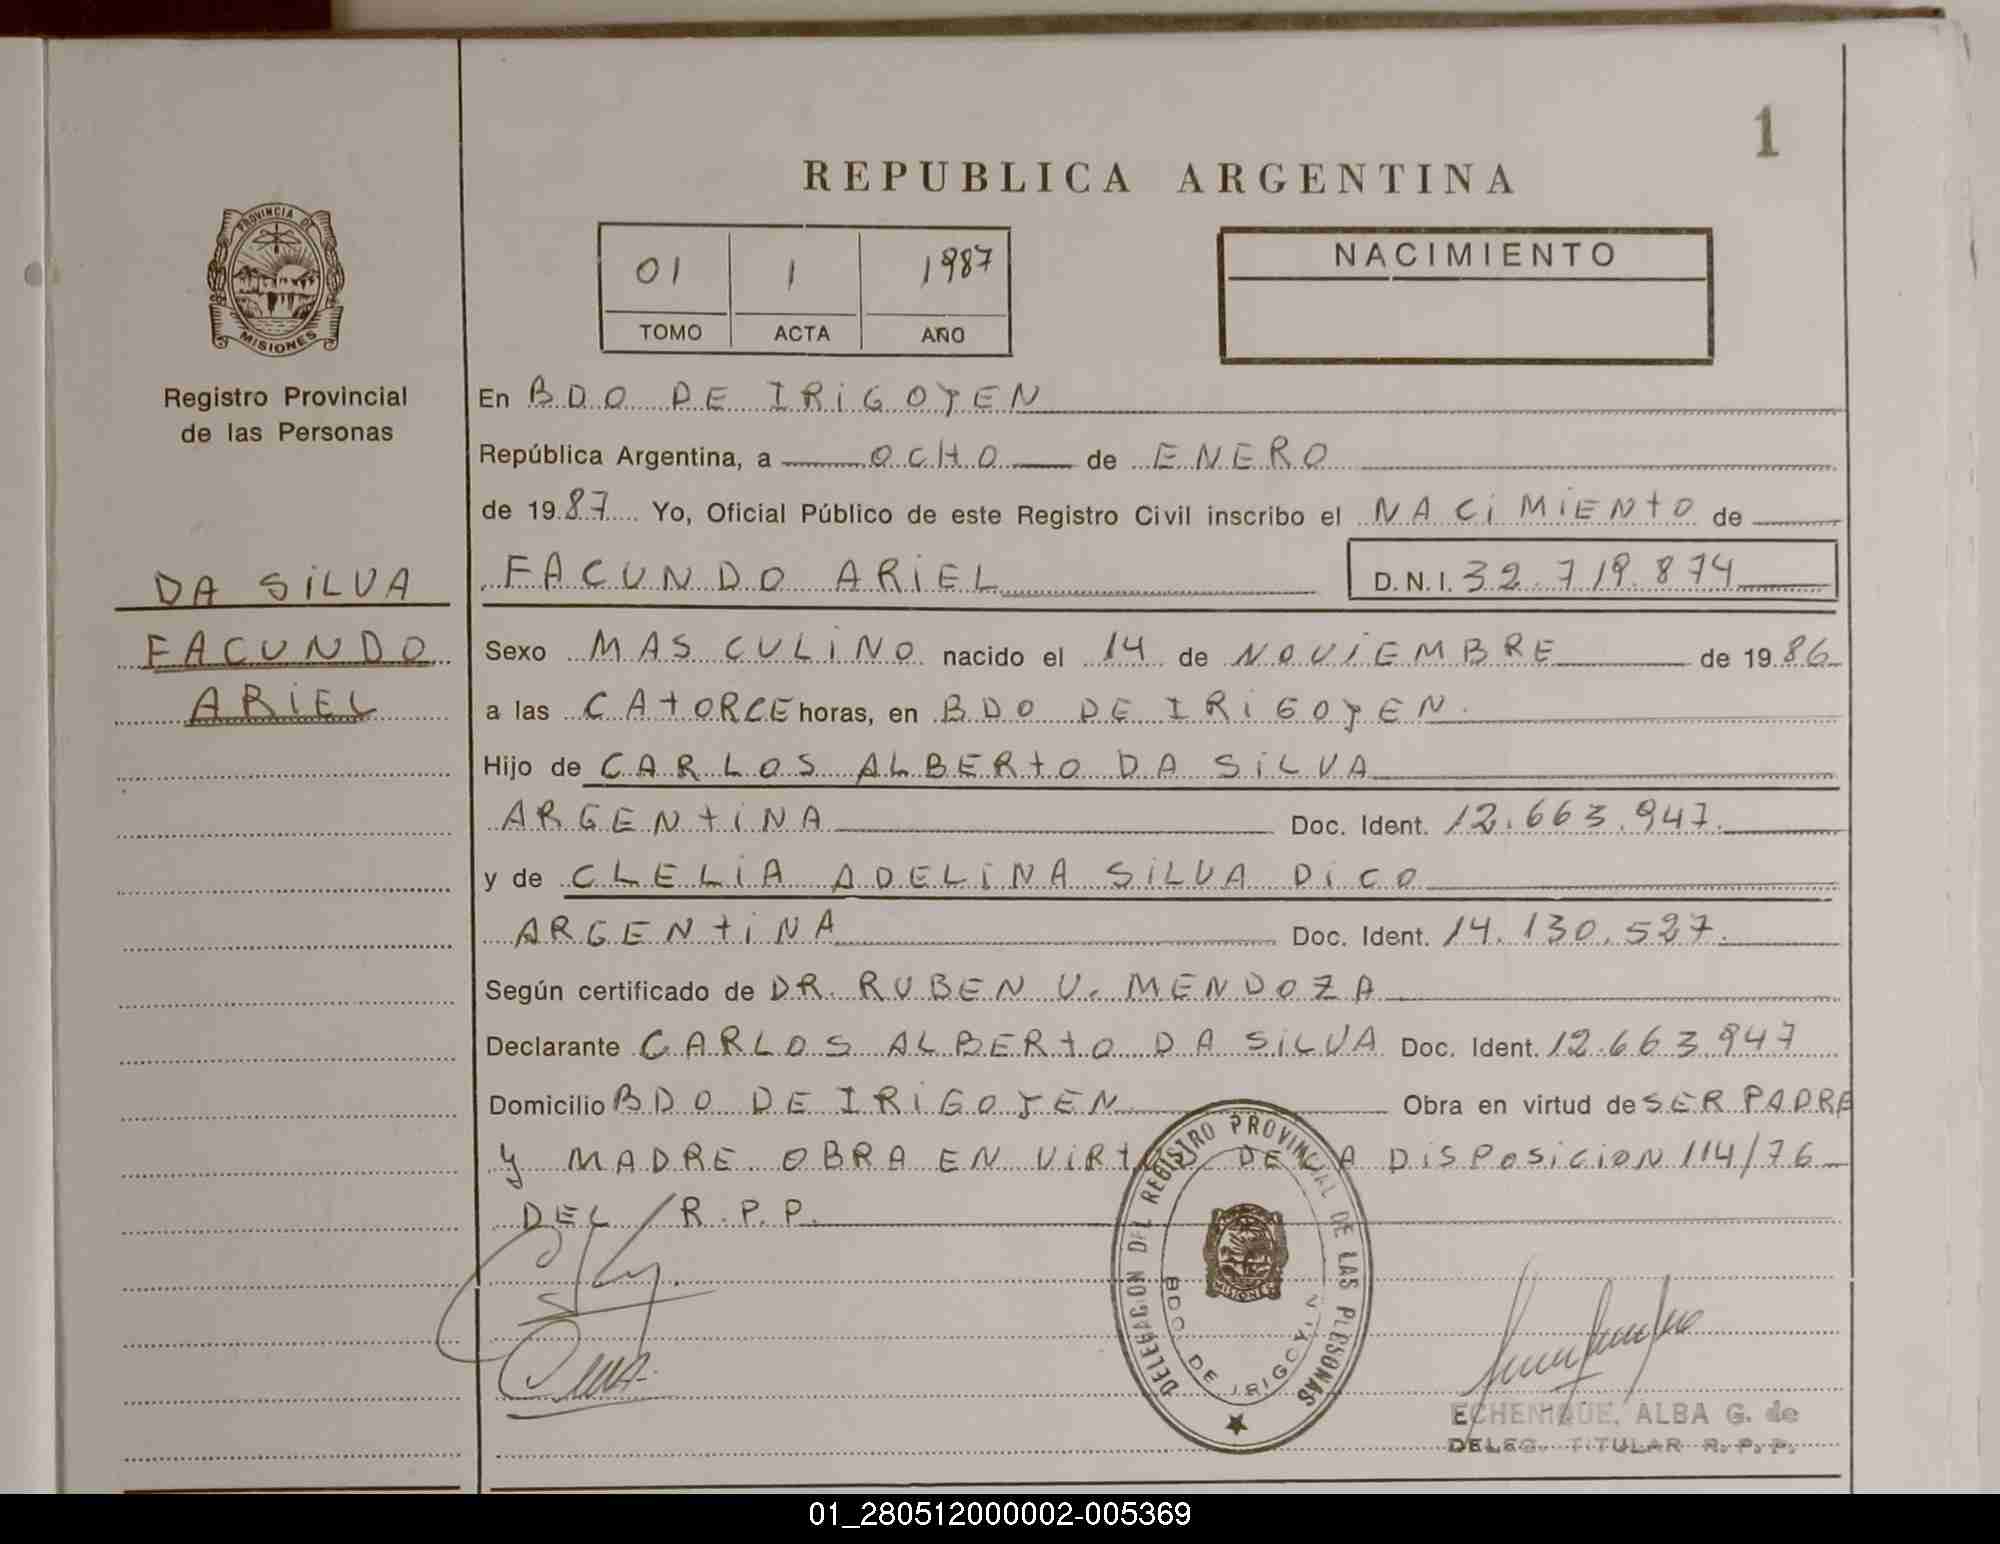 1
REPUBLICA ARGENTINA
PROVINCIA DE
MISIONES
Registro Provincial
de las Personas
01 1 1987
TOMO ACTA AÑO
NACIMIENTO
En BDO DE IRIGOYEN
República Argentina, a OCHO de ENERO
de 1987 Yo, Oficial Público de este Registro Civil inscribo el NACIMIENTO de
DA SILVA
FACUNDO
ARIEL
FACUNDO ARIEL D.N.I. 32.719.874
Sexo MASCULINO nacido el 14 de NOVIEMBRE de 1986
a las CATORCE horas, en BDO DE IRIGOYEN.
Hijo de CARLOS ALBERTO DA SILVA
ARGENTINA Doc. Ident. 12.663.947.
y de CLELIA ADELINA SILVA DICO
ARGENTINA Doc. Ident. 14.130.527.
Según certificado de DR. RUBEN V. MENDOZA
Declarante CARLOS ALBERTO DA SILVA Doc. Ident. 12.663.947
Domicilio BDO DE IRIGOYEN Obra en virtud de SER PADRE
Y MADRE OBRA EN VIRTUD DE LA DISPOSICION 114/76
DEL R.P.P.
DELEGACION DEL REGISTRO PROVINCIAL DE LAS PERSONAS
MISIONES
BDO. DE IRIGOY.
ECHENIQUE, ALBA G. de
DELEG. TITULAR R.P.P.
01_280512000002-005369